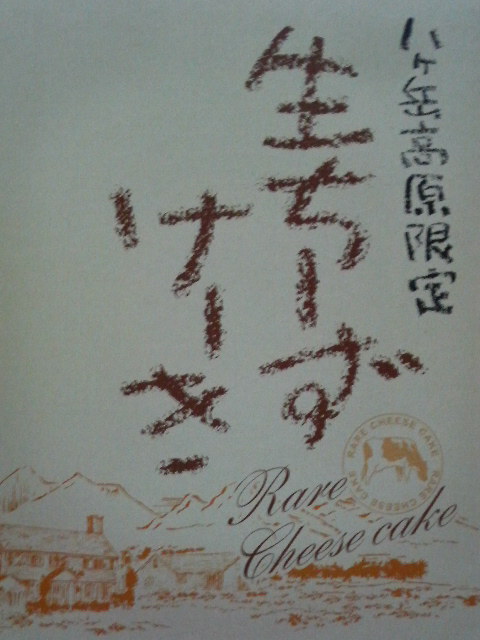 八ヶ岳高原限定
生ちーず
けーき
RARE CHEESE CAKE RARE CHEESE CAKE
Rare
Cheese cake